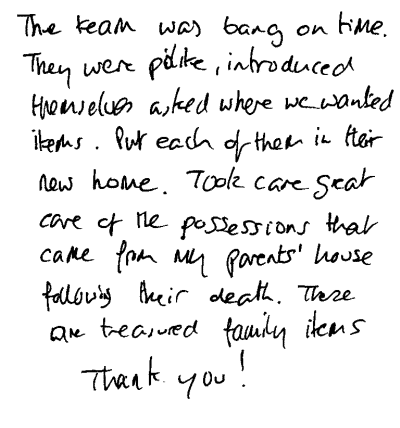 The team was bang on time.
They were polite, introduced
themselves asked where we wanted
items. Put each of them in their
new home. Took care great
care of the possessions that
came from my parents' house
following their death. These
are treasured family items
Thank you!